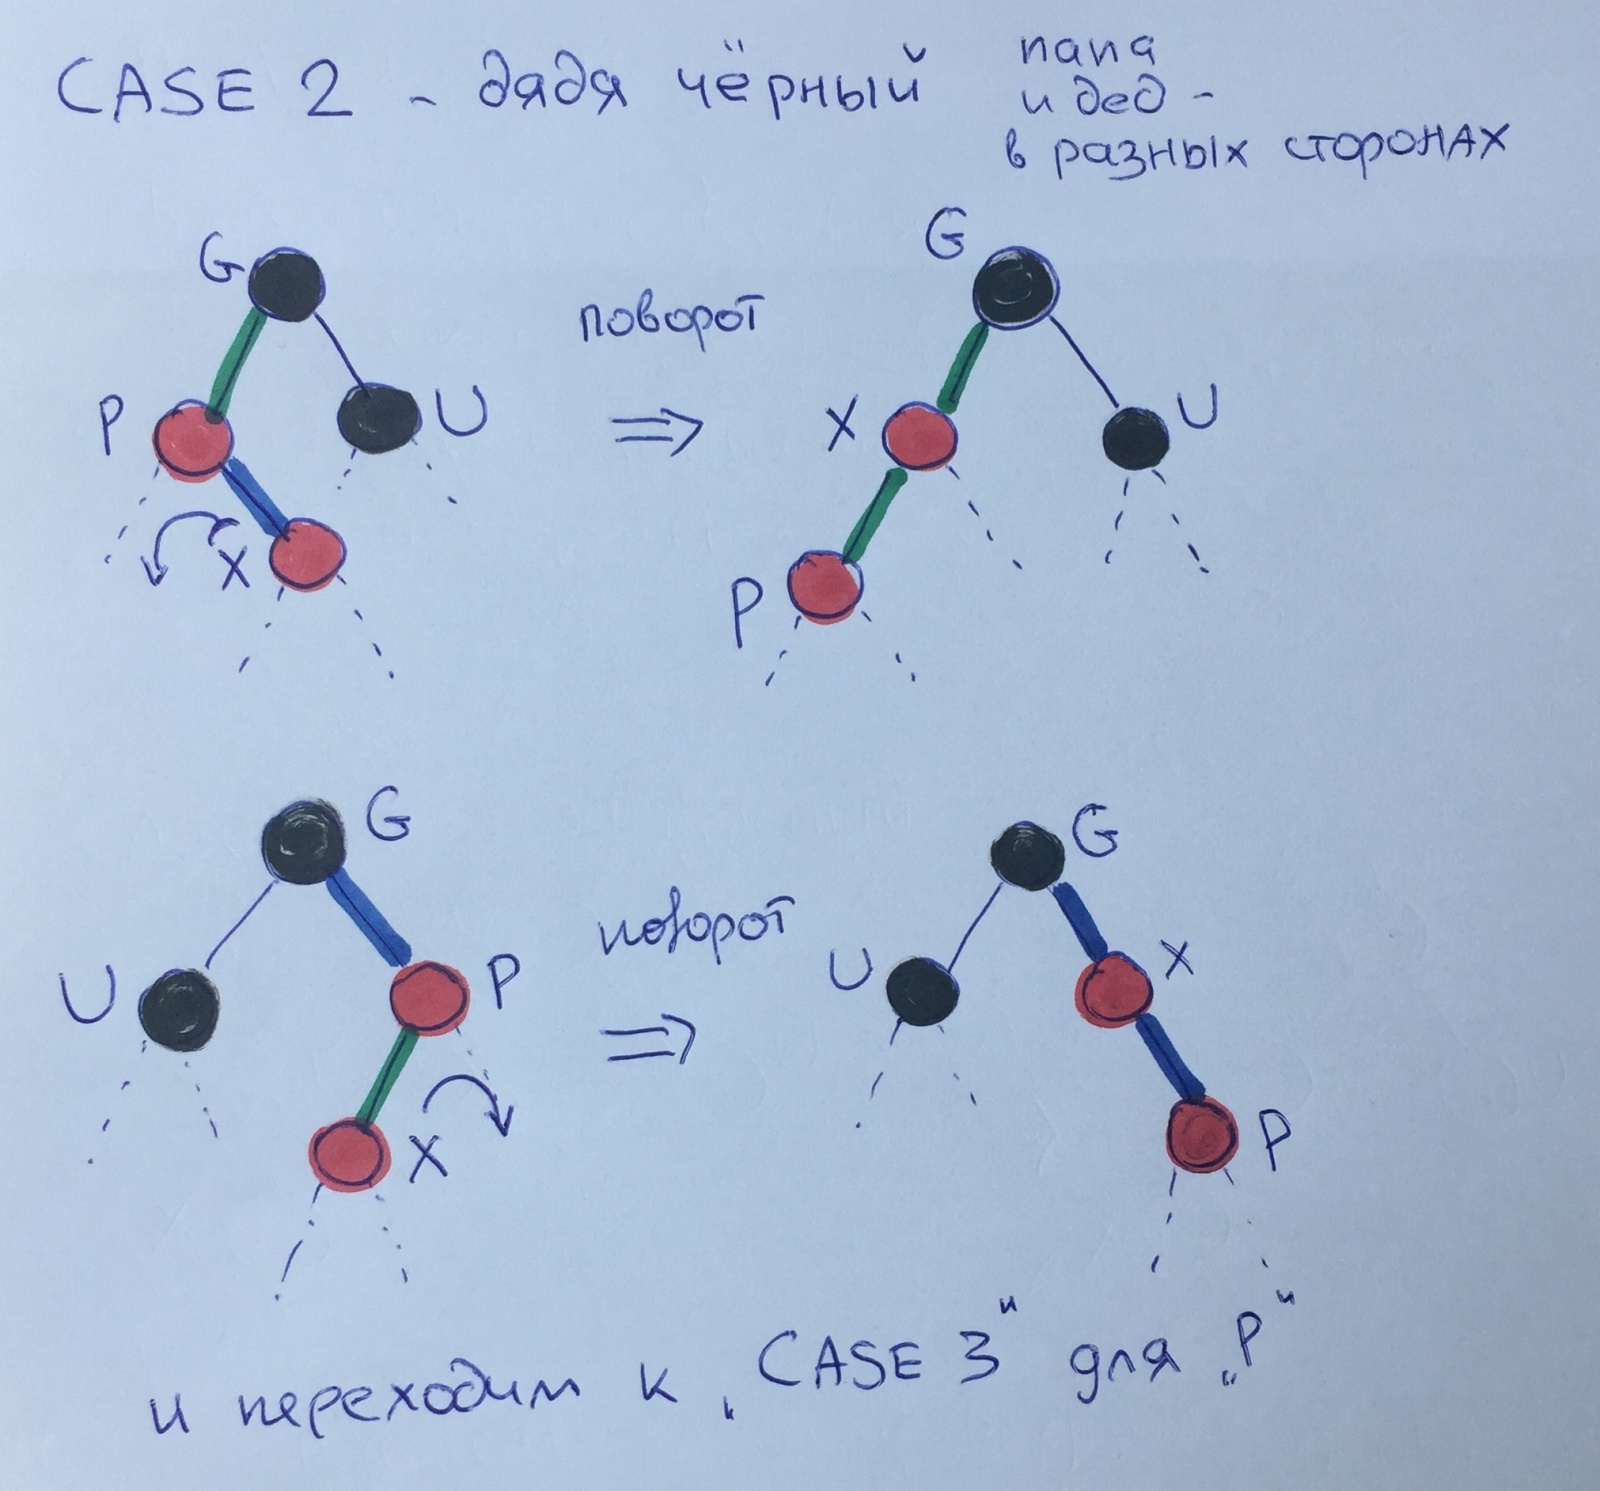 CASE 2 - дядя чёрный
папа
и дед -
в разных сторонах
G
G
поворот
P
U
⇒
X
U
X
P
G
G
поворот
U
P
U
X
⇒
X
P
и переходим к „CASE 3" для „P"